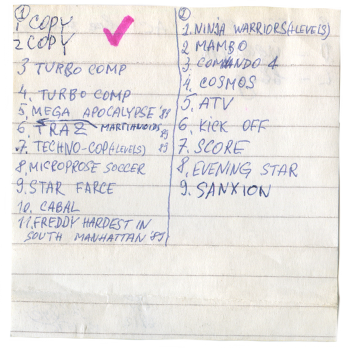 ①
1 COPY
2 COPY
3 TURBO COMP
4. TURBO COMP
5. MEGA APOCALYPSE '88
6. TRAZ MARTIANOIDS
7. TECHNO-COP(+LEVELS) 89
8. MICROPROSE SOCCER
9. STAR FARCE
10. CABAL
11. FREDDY HARDEST IN
SOUTH MANHATTAN '89
②
1. NINJA WARRIORS(+LEVELS)
2. MAMBO
3. COMANDO 4
4. COSMOS
5. ATV
6. KICK OFF
7. SCORE
8. EVENING STAR
9. SANXION